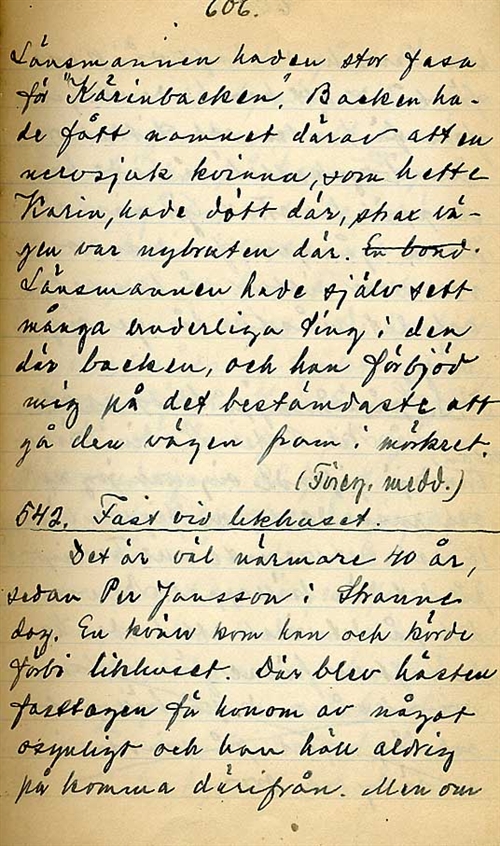 606.
Länsmannen hade en stor fasa
för "Kärinbacken". Backen ha-
de fått namnet därav att en
nervsjuk kvinna, som hette
Karin, hade dött där, strax vä-
gen var nybruten där. En bond
Länsmannen hade själv sett
många underliga ting i den
där backen, och han förbjöd
mig på det bestämdaste att
gå den vägen fram i mörkret.
(Föreg. medd.)
542. Fast vid likhuset.
Det är väl närmare 40 år,
sedan Per Jansson i
dog. En kväll kom han och körde
förbi likhuset. Där blev hästen
fasttagen få honom av något
osynligt och han höll aldrig
på komma därifrån. Men om